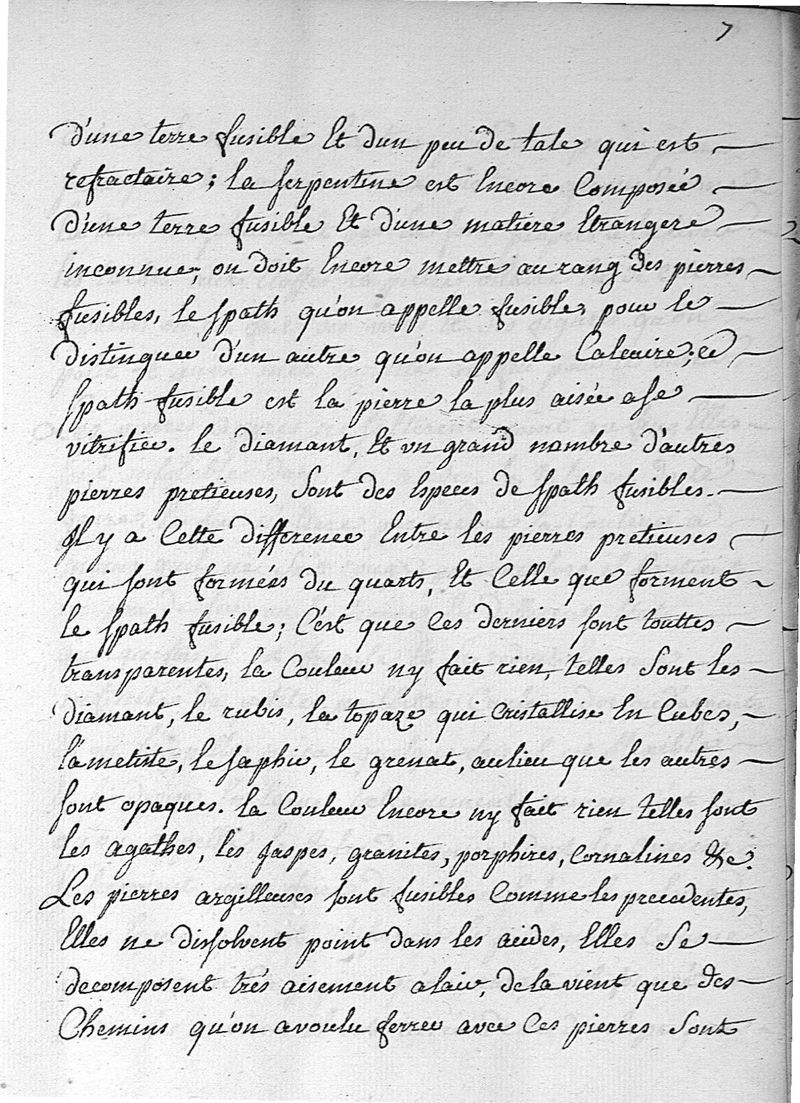 7
d'une terre fusible Et d'un peu de talc qui est
refractaire; la serpentine est Encore Composée
d'une terre fusible Et d'une matiere Etrangere
inconnue, on doit Encore mettre au rang des pierres
fusibles, le spath qu'on appelle fusible, pour le
distinguer d'un autre qu'on appelle Calcaire; ce
spath fusible est la pierre la plus aisée a se
vitrifier. le diamant, Et un grand nombre d'autres
pierres pretieuses, sont des Especes de spath fusibles.
Il y a Cette difference Entre les pierres pretieuses
qui sont formées du quarts, Et Celle que forment
le spath fusible; C'est que ces derniers sont touttes
transparentes, la Couleur ny fait rien, telles sont les
diamant, le rubis, la topaze qui cristallise En Cubes,
l'ametiste, le saphir, le grenat, aulieu que les autres
sont opaques. la Couleur Encore ny fait rien telles sont
les agathes, les jaspes, granites, porphires, cornalines &c.
Les pierres argilleuses sont fusibles Comme les precedentes,
Elles ne dissolvent point dans les acides, Elles se
decomposent trés aisement a l'air, de la vient que des
Chemins qu'on a voulu ferrer avec Ces pierres sont